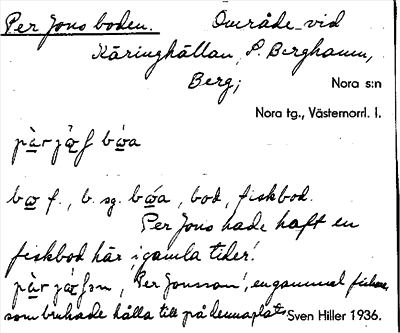 Per Jons boden. Område vid
Käringhällan, S. Berghamn,
Berg; Nora s:n
Nora tg., Västernorrl. l.
pàr
f., b. sg. bod, fiskbod.
Per Jons hade haft en
fiskbod här i gamla tider.
'Per Jonsson', en gammal fiskare,
som brukade hålla till på denna plats Sven Hiller 1936.